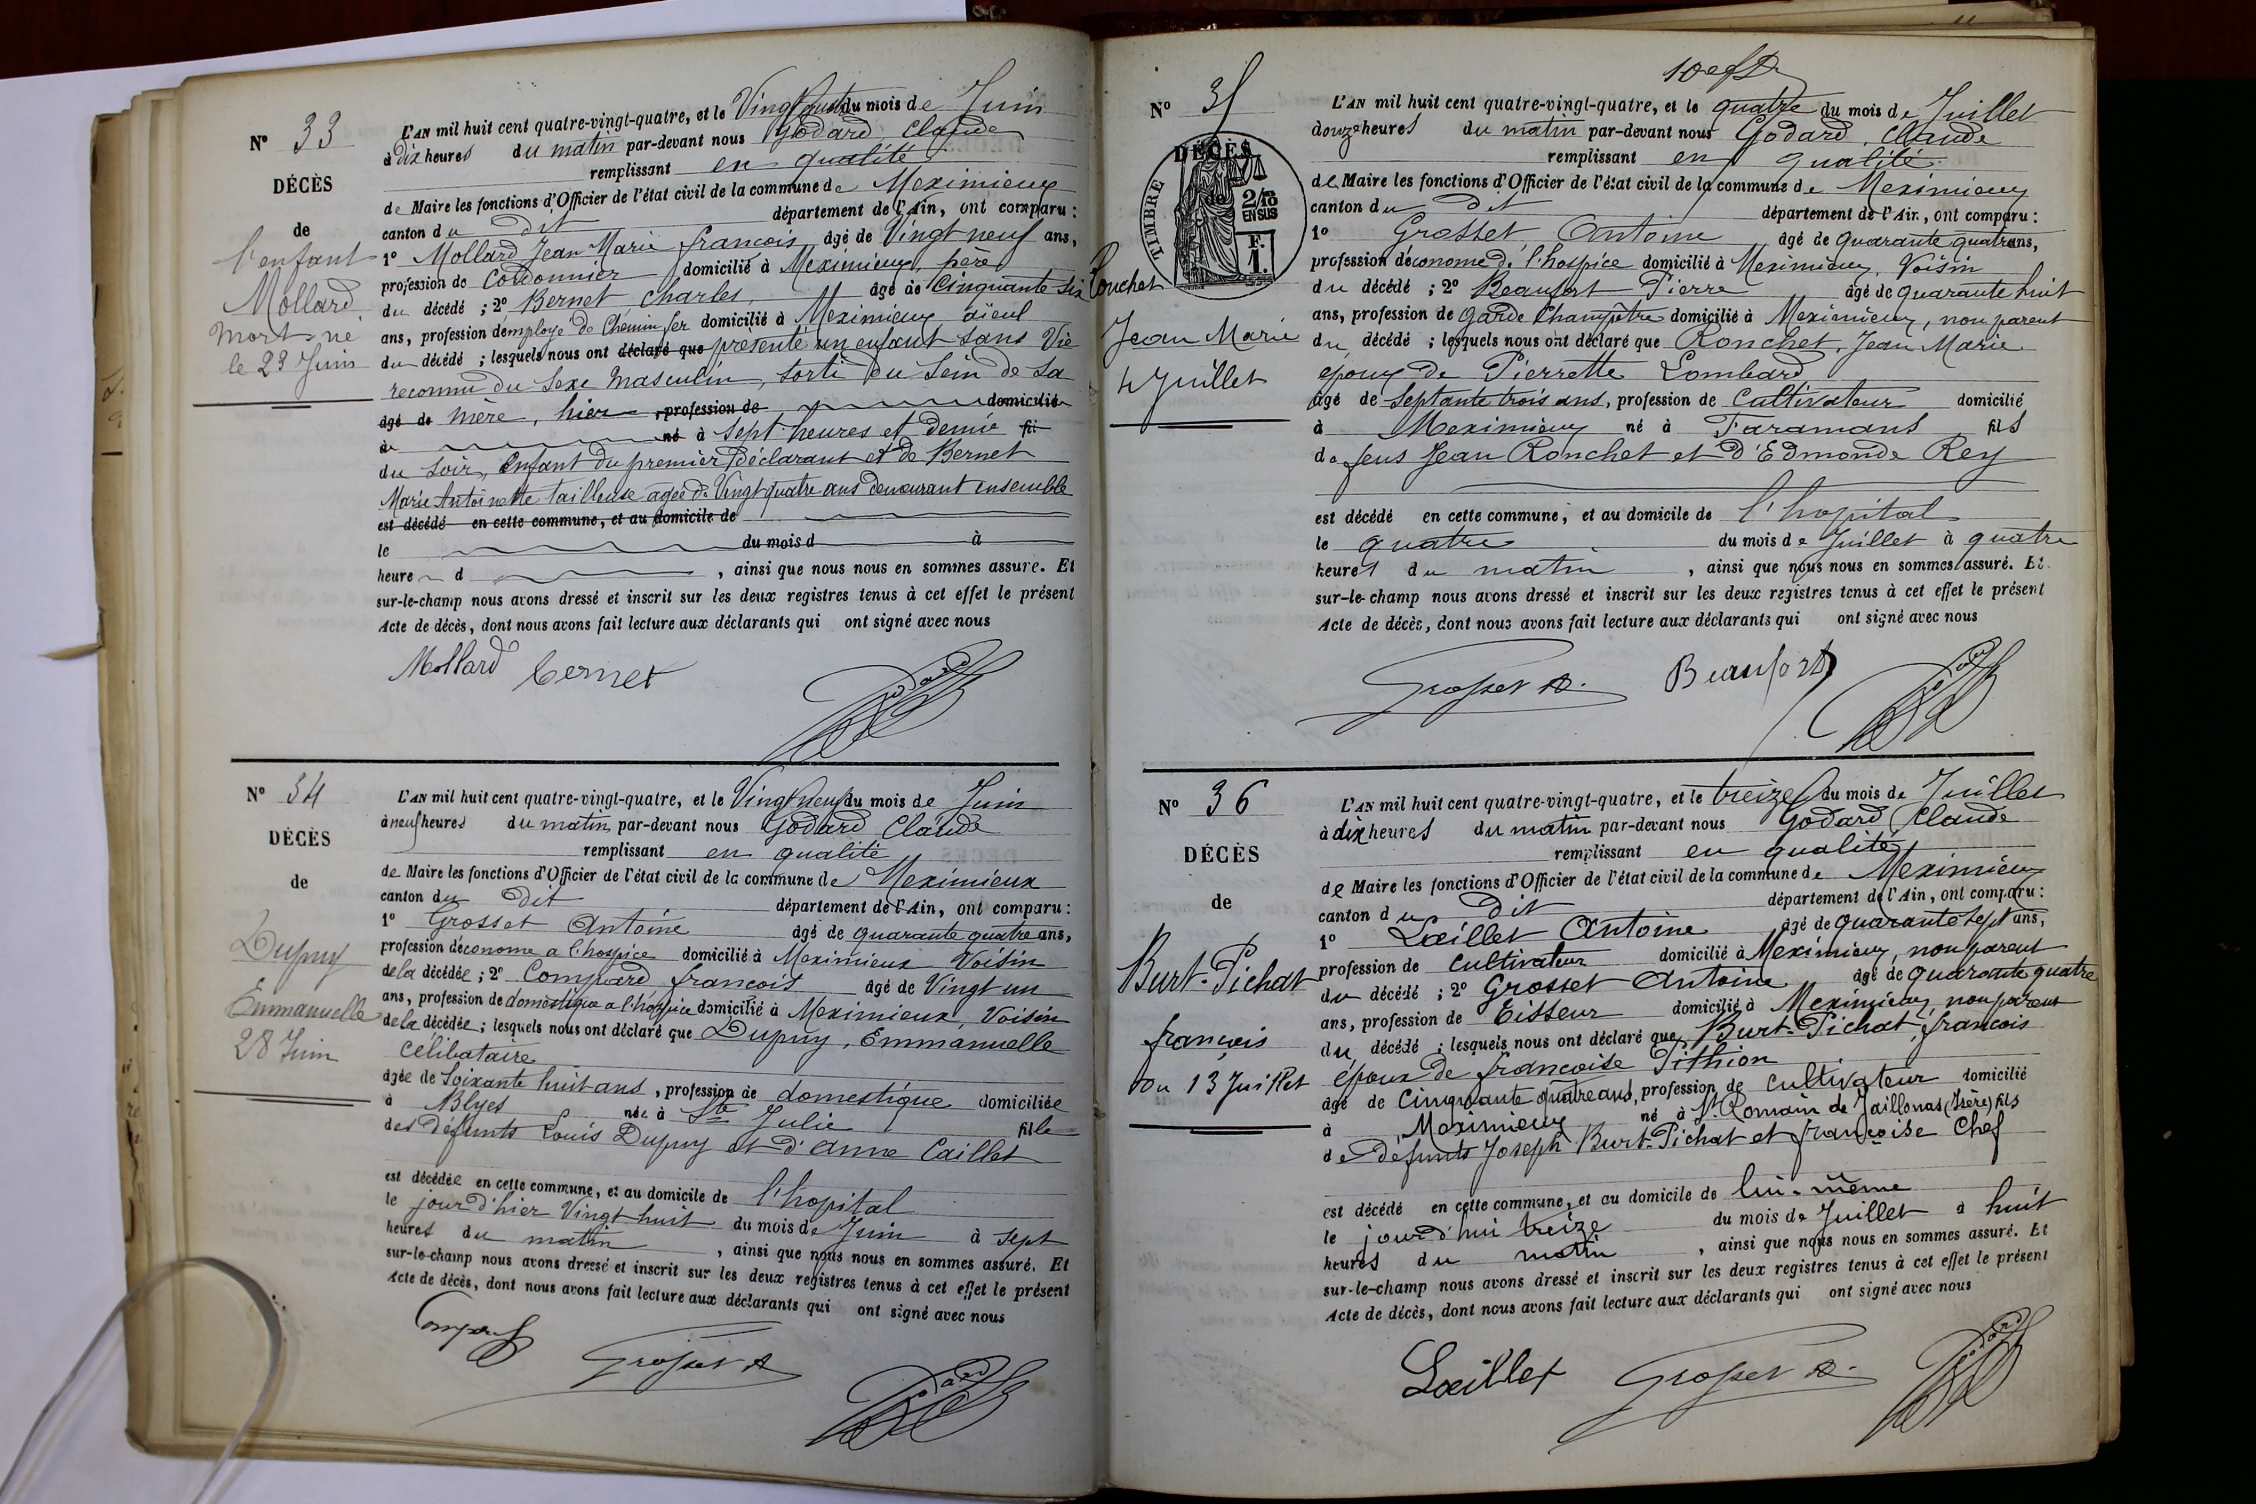 N° 33
DÉCÈS
de
l'enfant
Mollard
mort né
le 23 Juin
L'AN mil huit cent quatre-vingt-quatre, et le Vingt quatre du mois de Juin
à dix heures du matin par-devant nous Godard, Claude
remplissant en qualité
de Maire les fonctions d'Officier de l'état civil de la commune de Meximieux
canton du dit département de l'Ain, ont comparu :
1° Mollard Jean Marie françois âgé de Vingt neuf ans,
profession de Cordonnier domicilié à Meximieux, père
du décédé ; 2° Bernet Charles, âgé de Cinquante six
ans, profession d'employé de Chemin fer domicilié à Meximieux aïeul
du décédé ; lesquels nous ont déclaré que présenté un enfant sans Vie
reconnu du Sexe masculin, sorti du Sein de sa
âgé de mère, hier , profession de domicilié
à né à sept heures et demie fil
du soir, Enfant du premier déclarant et de Bernet
Marie Antoinette tailleuse agée de Vingt quatre ans demeurant ensemble
est décédé en cette commune, et au domicile de
le du mois d à
heure d , ainsi que nous nous en sommes assuré. Et
sur-le-champ nous avons dressé et inscrit sur les deux registres tenus à cet effet le présent
Acte de décès, dont nous avons fait lecture aux déclarants qui ont signé avec nous
Mollard Bernet Godard
N° 34
DÉCÈS
de
Dupuy
Emmanuelle
28 Juin
L'AN mil huit cent quatre-vingt-quatre, et le Vingt neuf du mois de Juin
à neuf heures du matin par-devant nous Godard Claude
remplissant en qualité
de Maire les fonctions d'Officier de l'état civil de la commune de Meximieux
canton du dit département de l'Ain, ont comparu :
1° Grosset Antoine âgé de quarante quatre ans,
profession d'économe a l'hospice domicilié à Meximieux Voisin
de la décédée ; 2° Compard, françois âgé de Vingt un
ans, profession de domestique a l'hospice domicilié à Meximieux, Voisin
de la décédée ; lesquels nous ont déclaré que Dupuy, Emmanuelle
Célibataire
âgée de Soixante huit ans, profession de domestique domiciliée
à Blyes née à Ste Julie fille
des défunts Louis Dupuy et d'Anne Caillet
est décédée en cette commune, et au domicile de l'hopital
le jour d'hier Vingt huit du mois de Juin à sept
heures du matin , ainsi que nous nous en sommes assuré. Et
sur-le-champ nous avons dressé et inscrit sur les deux registres tenus à cet effet le présent
Acte de décès, dont nous avons fait lecture aux déclarants qui ont signé avec nous
Grosset A Godard
N° 35
DÉCÈS
TIMBRE
de
2/10 EN SUS
F. 1.
Ronchet
Jean Marie
4 Juillet
L'AN mil huit cent quatre-vingt-quatre, et le quatre du mois de Juillet
douze heures du matin par-devant nous Godard, Claude
remplissant en qualité
de Maire les fonctions d'Officier de l'état civil de la commune de Meximieux
canton du dit département de l'Ain, ont comparu :
1° Grosset Antoine âgé de quarante quatre ans,
profession d'économe de l'hospice domicilié à Meximieux, Voisin
du décédé ; 2° Beaufort Pierre âgé de quarante huit
ans, profession de Garde Champêtre domicilié à Meximieux, non parent
du décédé ; lesquels nous ont déclaré que Ronchet, Jean Marie
époux de Pierrette Lombard
âgé de septante trois ans, profession de Cultivateur domicilié
à Meximieux né à Faramans fils
de feus Jean Ronchet et D'Edmonde Rey
est décédé en cette commune, et au domicile de l'hopital
le quatre du mois de Juillet à quatre
heures du matin , ainsi que nous nous en sommes assuré. Et
sur-le-champ nous avons dressé et inscrit sur les deux registres tenus à cet effet le présent
Acte de décès, dont nous avons fait lecture aux déclarants qui ont signé avec nous
Grosset A. Beaufort Godard
N° 36
DÉCÈS
de
Burt-Pichat
françois
Du 13 Juillet
L'AN mil huit cent quatre-vingt-quatre, et le treize du mois de Juillet
à dix heures du matin par-devant nous Godard Claude
remplissant en qualité
de Maire les fonctions d'Officier de l'état civil de la commune de Meximieux
canton du dit département de l'Ain, ont comparu :
1° Lœillet Antoine âgé de quarante sept ans,
profession de cultivateur domicilié à Meximieux, non parent
du décédé ; 2° Grosset Antoine âgé de quarante quatre
ans, profession de Tisseur domicilié à Meximieux, non parent
du décédé ; lesquels nous ont déclaré que Burt-Pichat, françois
époux de françoise Pithion
âgé de Cinquante quatre ans, profession de cultivateur domicilié
à Meximieux né à St Romain de Jaillonas (Isère) fils
de défunts Joseph Burt-Pichat et françoise Chef
est décédé en cette commune, et au domicile de lui-même
le jourd'hui treize du mois de Juillet à huit
heures du matin , ainsi que nous nous en sommes assuré. Et
sur-le-champ nous avons dressé et inscrit sur les deux registres tenus à cet effet le présent
Acte de décès, dont nous avons fait lecture aux déclarants qui ont signé avec nous
Lœillet Grosset A. Godard